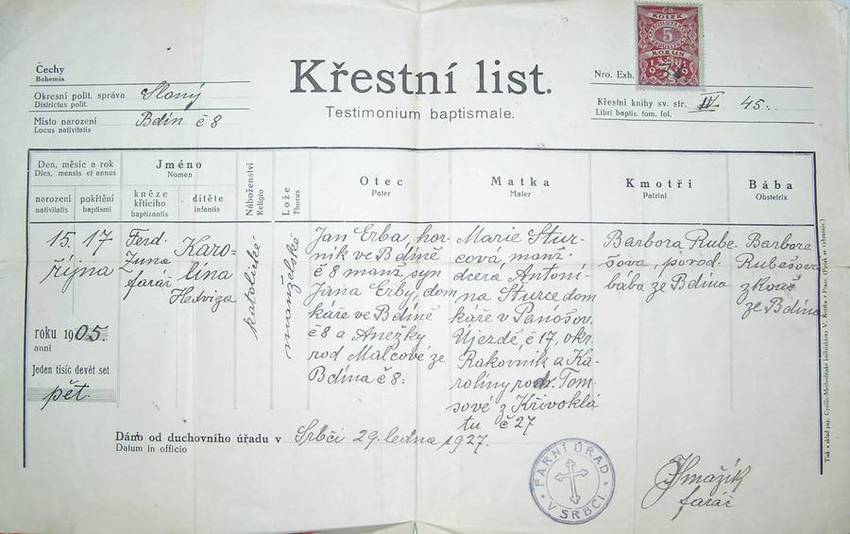 Čechy
Bohemia
Okresní polit. správa Slaný
Districtus polit.
Místo narození Bdín č 8
Locus nativitatis
Křestní list.
Testimonium baptismale.
KOLEK
5
KORUN
Nro. Exh.
Křestní knihy sv. str. IV 45.
Libri baptiz. tom. fol.
Den, měsíc a rok
Dies, mensis et annus
narození
nativitatis
pokřtění
baptismi
Jméno
Nomen
kněze
křtícího
baptizantis
dítěte
infantis
Náboženství
Religio
Lože
Thorus
Otec
Pater
Matka
Mater
Kmotři
Patrini
Bába
Obstetrix
15. 17
října
roku 1905.
anni
Jeden tisíc devět set
pět.
Ferd.
farář
Karo-
lína
Hedviga
katolické
manželské
Jan Erba, hor-
ník ve Bdíně
č 8 manž. syn
Jana Erby, dom
káře ve Bdíně
č 8 a Anežky
rod Malcové ze
Bdína č 8.
Marie Štur-
cova, manž
dcera Antoní-
na Šturce dom
káře v Panošov.
Újezdě, č 17, okr.
Rakovník a Ka-
roliny rodr. Tom-
sové z Křivoklá
tu č 27
Barbora Rube-
šova, porod.
bába ze Bdína
Barbora
Rubešova
zkouš
ze Bdína
Dáno od duchovního úřadu v Srbči 29. ledna 1927.
Datum in officio
FARNÍ ÚŘAD
V SRBČI
farář